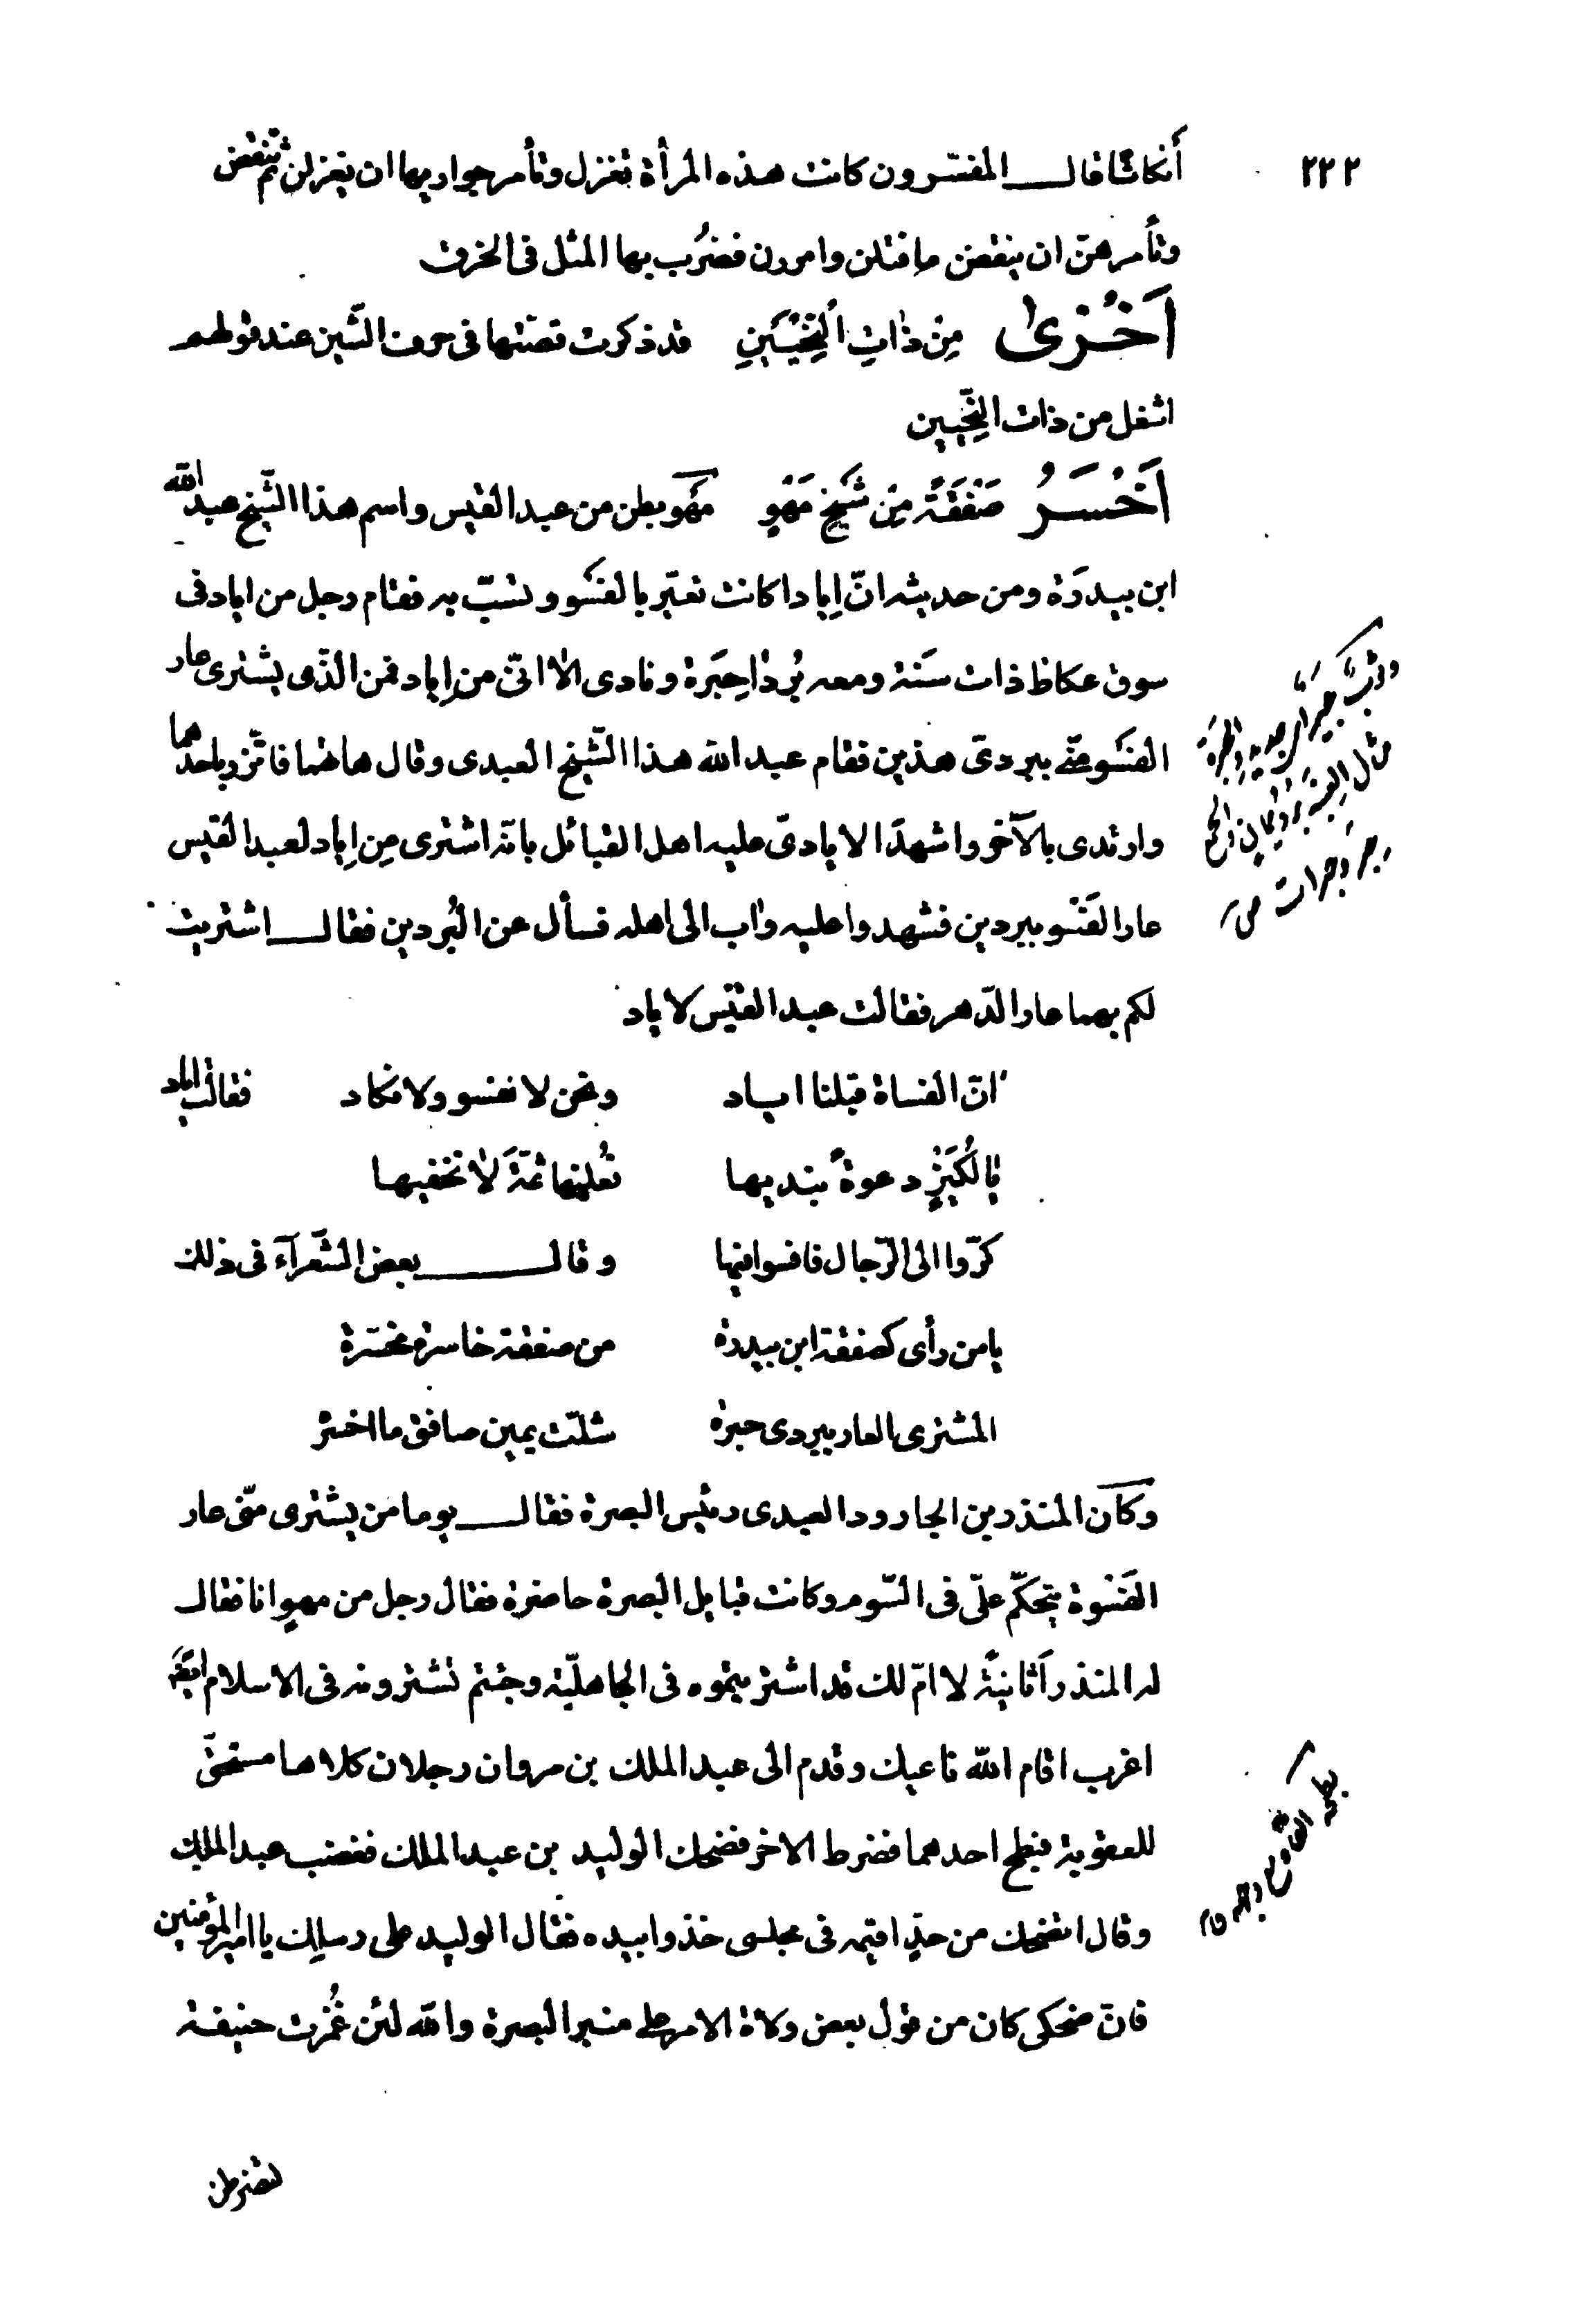 ٢٣٢
أنكاثا قال المفسّرون كانت هذه المرأة تغزل وتأمر جواريها ان يغزلن ثم تنقض
وتأمرهنّ ان ينقضن ما فتلن وامررن فضُرب بها المثل فى الخرق
اَخْزىٰ مِنْ ذٰاتِ النِّحْيَيْنِ قد ذكرت قصّتها فى حرف الشّين عند قولهم
اشغل من ذات النِّحيين
اَخْسَرُ صَفْقَةً مِنْ شَيْخِ مَهْوٍ مَهْو بطن من عبد القيس واسم هذا الشّيخ عبد الله
ابن بيدَرَة ومن حديثه انّ اِيادا كانت تعيّر بالفَسْو وتسبّ به فقام رجل من اياد فى
سوق عكاظ ذات سَنَة ومعه بُردٰا حِبَرة ونادى الا انّى من اِياد فمن الّذى يشترى عار
الفَسْو منّى ببردىّ هذين فقام عبد الله هذا الشّيخ العبدى وقال هاتهما فاتّزر باحدهما
وارتدى بالآخر واشهدَ الايادىّ عليه اهل القبائل بانّه اشترى مِن اِياد لعبد القيس
عار الفَسْو ببردين فشهدوا عليه وٰاب الى اهله فسأل عن البُردين فقال اشتريت
لكم بهما عار الدّهر فقالت عبد القيْس لاياد
انّ الفساة قبلنا اياد ونحن لا نفسو ولا نكاد فقالت اياد
يٰا لُكَيْزٍ دعوةً نبديها نُعلنها ثمّةَ لٰا نخفيها
كرّوا الى الرّحال فافسوا فيها وقال بعض الشّعرآء فى ذلك
يا من رأى كصفقة ابن بيدره من صفقة خاسرة مخسّرة
المشترى العار ببردى حبره شلّت يمين صافق ما اخسره
وكان المنذر بن الجارود العبدى رئيس البصرة فقال يوما من يشترى منّى عار
الفَسْوة يتحكّم علىّ فى السّوم وكانت قبايل البصرة حاضرة فقال رجل من مهوٍ انا فقال
له المنذر اَثانيَةً لا امّ لك قد اشتريتموه فى الجاهليّة وجئتم تشترونه فى الاسلام ايضًا
اغرب اقام الله ناعيك وقدم الى عبد الملك بن مروان رجلان كلاهما مستحقّ
للعقوبة فبطح احدهما فضرط الاخر فضحك الوليد بن عبد الملك فغضب عبد الملك
وقال اتضحك من حدّ اقيمه فى مجلسى خذوا بيده فقال الوليد على رسلك يا امير المؤمنين
فانّ ضحكى كان من قول بعض ولاة الامر على منبر البصرة والله لئن غُمزت حنيفة
لتضرطن